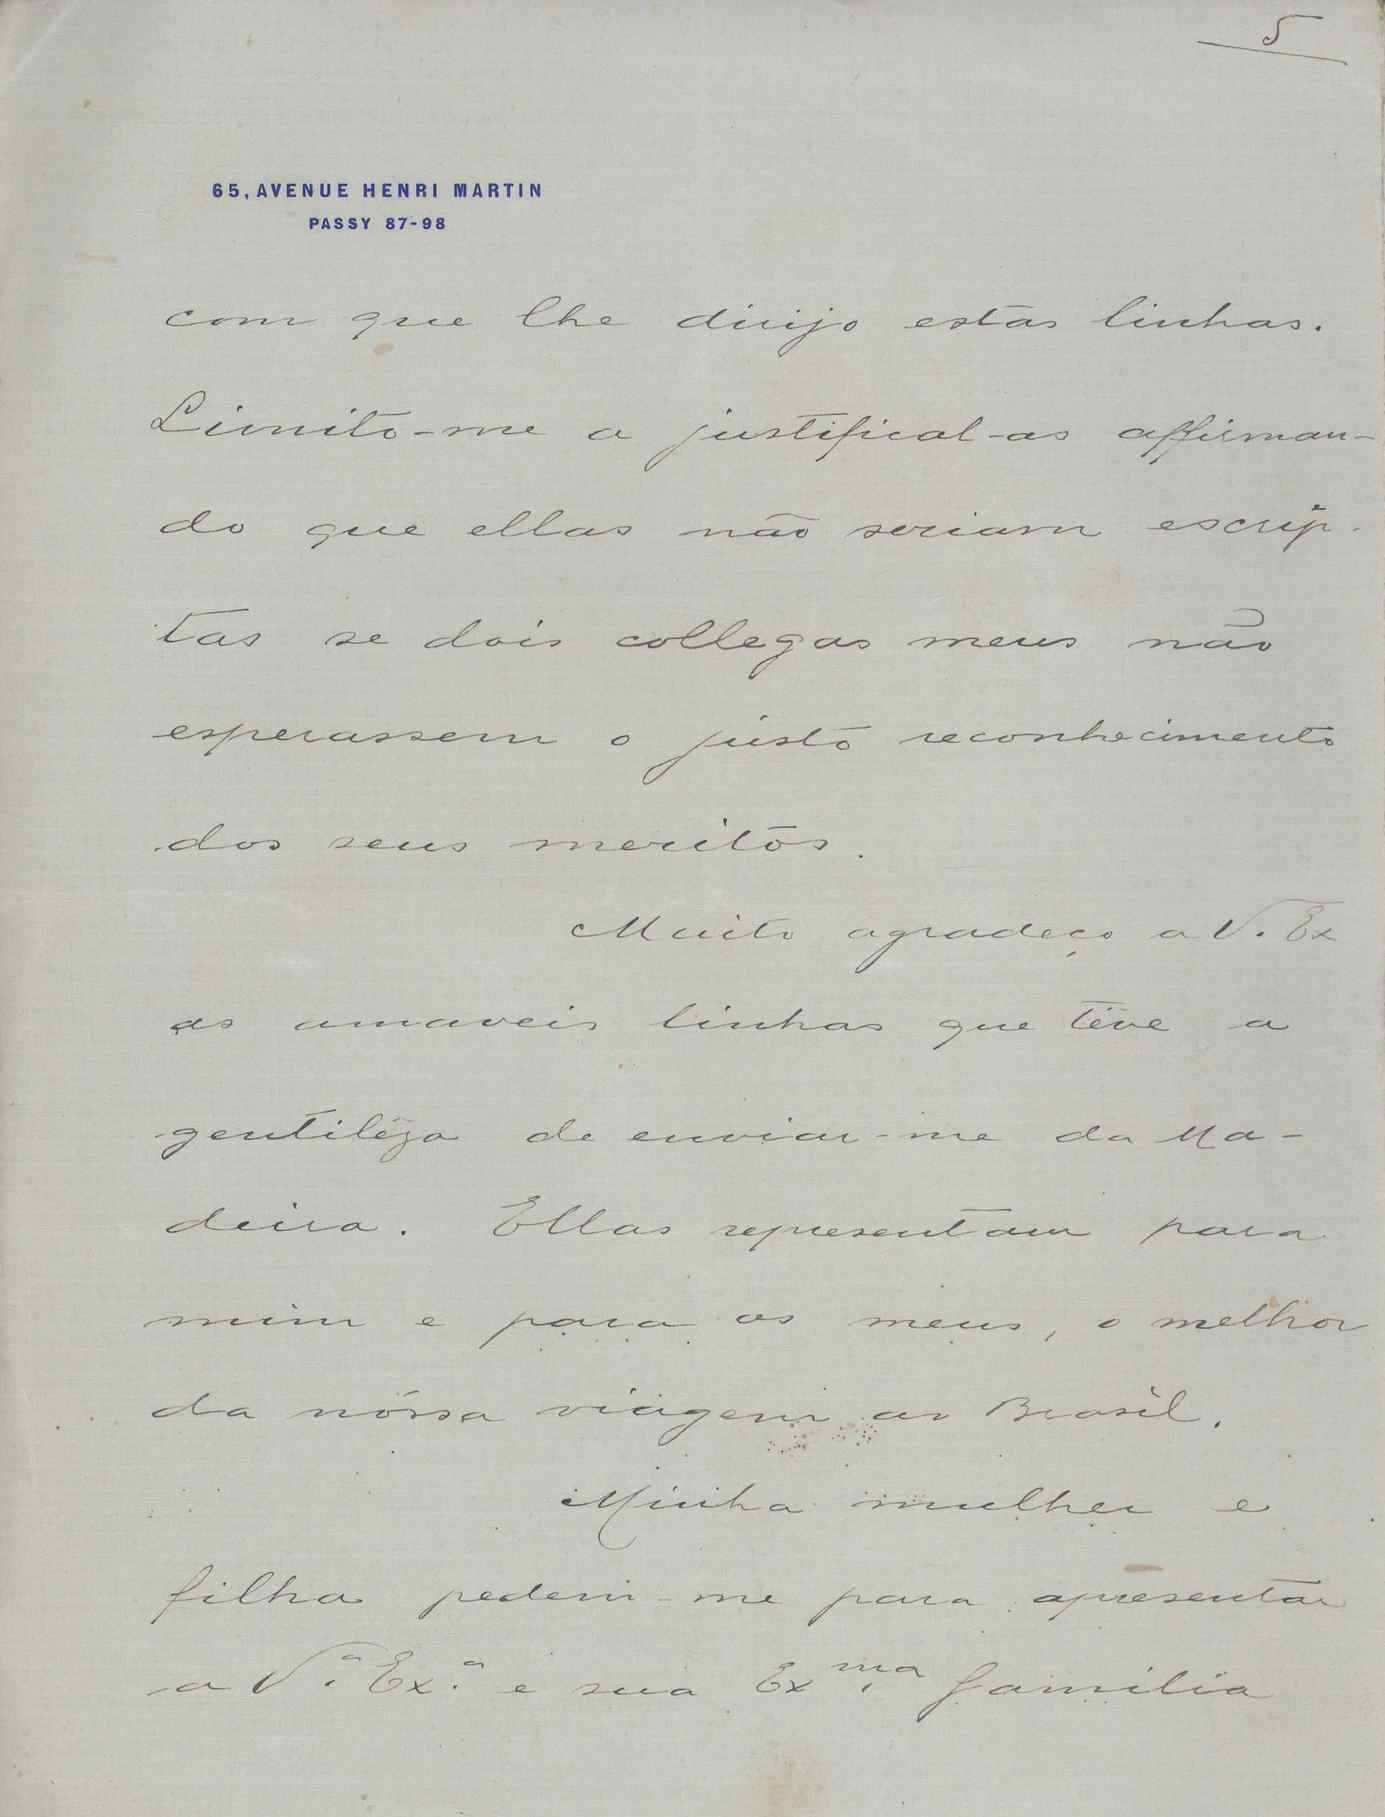 5
65, AVENUE HENRI MARTIN
PASSY 87-98
com que lhe dirijo estas linhas.
Limito-me a justifical-as affirman-
do que ellas não seriam escrip-
tas se dois collegas meus não
esperassem o justo reconhecimento
dos seus meritos.
Muito agradeço a V. Ex
as amaveis linhas que têve a
gentilêza de enviar-me da Ma-
deira. Ellas representam para
mim e para os meus, o melhor
da nóssa viagem ao Brasil.
Minha mulher e
filha pedem-me para apresentar
a V.ª Ex.ª e sua Exma. familia